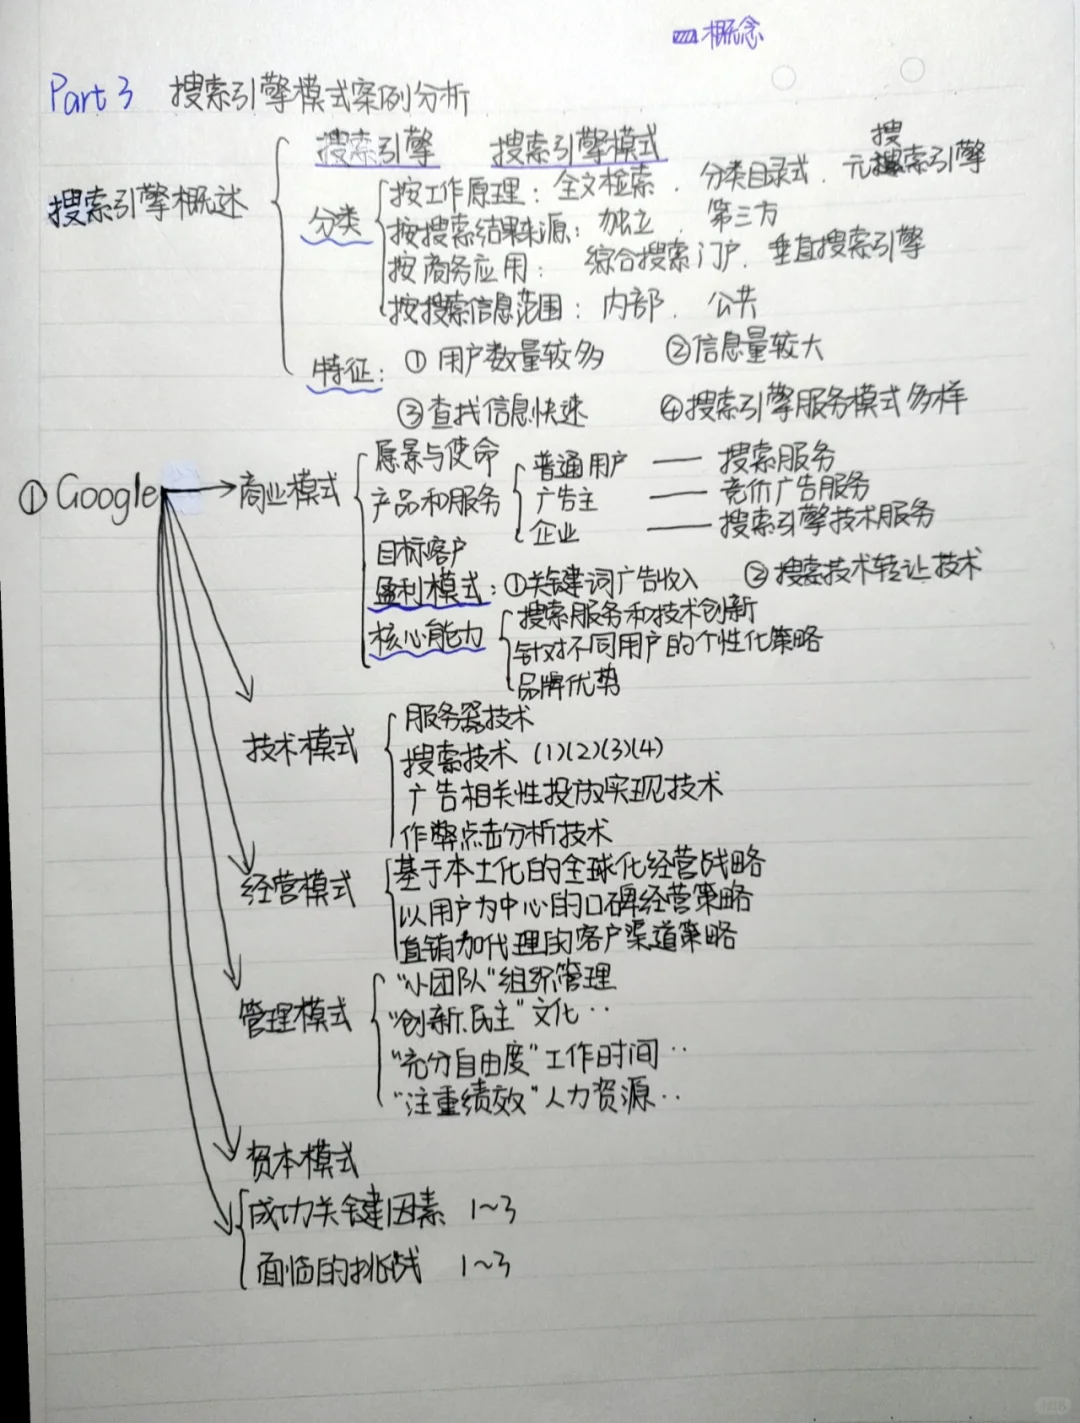 概念
Part 3 搜索引擎模式案例分析
搜索引擎概述
搜索引擎 搜索引擎模式
分类
按工作原理：全文检索、分类目录式、元搜索引擎
搜
按搜索结果来源：独立、第三方
按商务应用：综合搜索门户、垂直搜索引擎
按搜索信息范围：内部、公共
特征：①用户数量较多 ②信息量较大
③查找信息快速 ④搜索引擎服务模式多样
①Google
商业模式
愿景与使命
产品和服务
普通用户 — 搜索服务
广告主 — 竞价广告服务
企业 — 搜索引擎技术服务
目标客户
盈利模式：①关键词广告收入 ②搜索技术转让技术
核心能力
搜索服务和技术创新
针对不同用户的个性化策略
品牌优势
技术模式
服务器技术
搜索技术 (1)(2)(3)(4)
广告相关性投放实现技术
作弊点击分析技术
经营模式
基于本土化的全球化经营战略
以用户为中心的口碑经营策略
直销加代理的客户渠道策略
管理模式
“小团队”组织管理
“创新、民主”文化··
“充分自由度”工作时间··
“注重绩效”人力资源··
资本模式
成功关键因素 1~3
面临的挑战 1~3